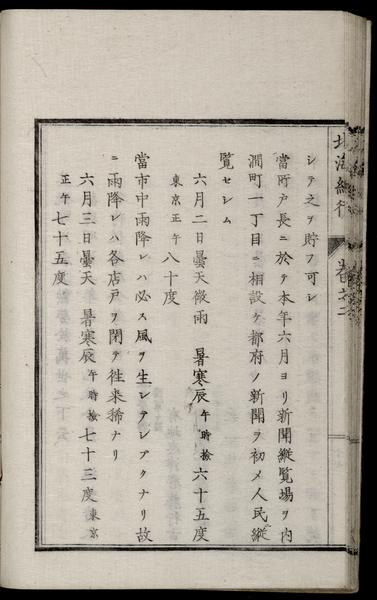 北海紀行 卷之二
シテ之ヲ貯フ可シ
當所戸長ニ於テ本年六月ヨリ新聞縱覧場ヲ内
澗町一丁目ニ相設ケ都府ノ新聞ヲ初メ人民縱
覧セシム
六月二日曇天微雨 暑寒辰午時檢六十五度
東京正午八十度
當市中雨降レハ必ス風ヲ生シテシアクナリ故
ニ雨降レハ各店戸ヲ閉テ徃来稀ナリ
六月三日曇天 暑寒辰午時檢七十三度東京
正午七十五度